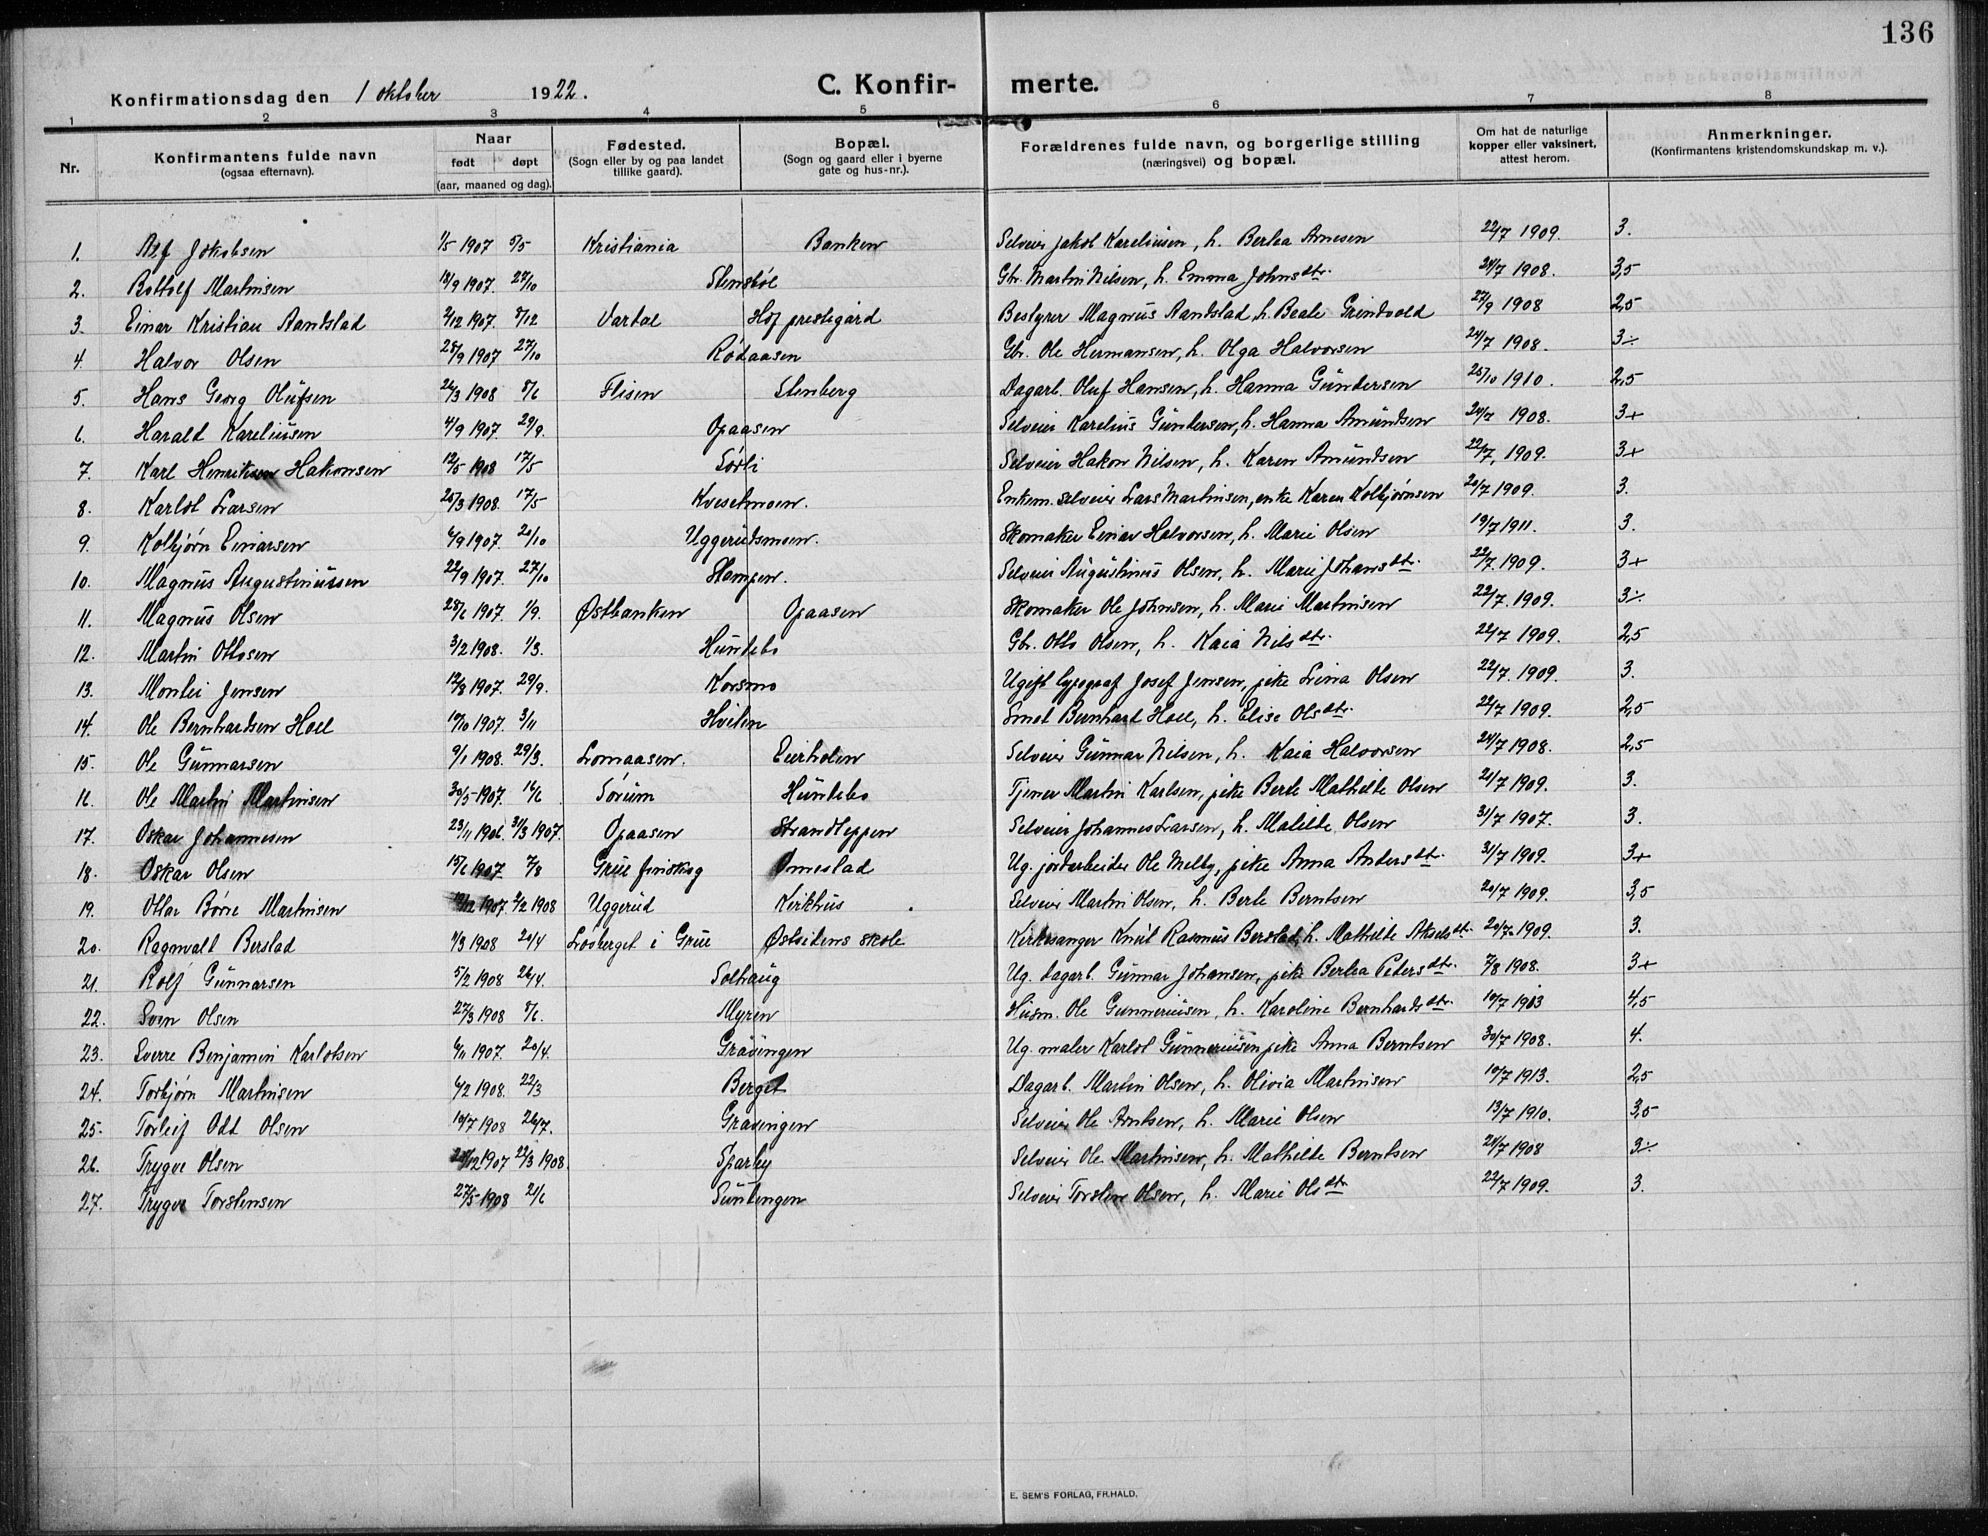 136
Konfirmationsdag den 1 oktober 1922. C. Konfirmerte.
1 2 3 4 5 6 7 8
Nr. Konfirmantens fulde navn (ogsaa efternavn). Naar født døpt (aar, maaned og dag). Fødested. (Sogn eller by og paa landet tillike gaard). Bopæl. (Sogn og gaard eller i byerne gate og hus-nr.). Forældrenes fulde navn, og borgerlige stilling (næringsvei) og bopæl. Om hat de naturlige kopper eller vaksinert, attest herom. Anmerkninger. (Konfirmantens kristendomskundskap m. v.).
1. Alf Jakobsen 1/5 1907 5/5 Kristiania Banken Selveier Jakob Kareliusen, h. Berthea Arnesen 22/7 1909. 3.
2. Bottolf Martinsen 18/9 1907. 27/10 Stensbøl Gbr. Martin Nilsen, h. Emma Johnsdtr. 24/7 1908. 3,5
3. Einar Kristian Aandstad 2/12 1907. 8/12 Vartdal Hof prestegård Bestyrer Magnus Aandstad, h. Beate Grindvold 27/9 1908 2,5
4. Halvor Olsen 28/9 1907 27/10 Rødaasen Gbr. Ole Hermansen, h. Olga Halvorsen 24/7 1908. 3÷
5. Hans Georg Olufsen 26/3 1908 8/6 Flisen Stenberg Dagarb. Oluf Hansen, h. Hanna Gundersen 25/10 1910. 2,5
6. Harald Kareliusen 4/9 1907. 29/9. Opaasen Selveier Karelius Gundersen, h. Hanna Amundsen 24/7 1908. 3+
7. Karl Henriksen Hakonsen 12/5 1908 17/5 Sørli Selveier Hakon Nilsen, h. Karen Amundsen 22/7, 1909. 3+
8. Karlot Larsen 25/3 1908. 17/5 Kvesetmoen. Enkem. selveier Lars Martinsen, enke Karen Kolbjørnsen 20/7 1909. 3.
9. Kolbjørn Einarsen 6/9 1907. 20/10 Uggerudsmoen. Skomaker Einar Halvorsen, h. Marie Olsen 19/7 1911. 3.
10. Magnus Augustinussen 22/9 1907. 27/10 Stampen. Selveier Augustinus Olsen, h. Marie Johansdtr. 22/7. 1909. 3+
11. Magnus Olsen 28/6 1907. 1/9. Østbanken Opaasen Skomaker Ole Johnsen, h. Marie Martinsen 22/7. 1909. 3÷
12. Martin Ottosen 3/2 1908. 1/3. Hundebo Gbr. Otto Olsen, h. Kaia Nilsdtr. 22/7 1909. 2,5
13. Montei Jensen 12/8 1907. 29/9. Korsmo Ugift typograf Josef Jensen, pike Lina Olsen 22/7. 1909. 3.
14. Ole Bernhardsen Hoel 19/10 1907. 3/11 Hvilen Smed Bernhard Hoel, h. Elise Olsdtr. 22/7 1909. 2,5
15. Ole Gunnarsen 9/1 1908. 29/3. Lomaasen. Eierholen Selveier Gunnar Nilsen, h. Kaia Halvorsen 24/7 1908. 2,5
16. Ole Martin Martinsen 30/5 1907. 16/6 Sørum Hundebo Tjener Martin Karlsen, pike Berte Mathilde Olsen 21/7 1909. 3.
17. Oskar Johannesen 23/11 1906. 31/3 1907. Opaasen Strandteppen Selveier Johannes Larsen, h. Matilde Olsen 31/7 1907. 3.
18. Oskar Olsen 15/6 1907. 7/8 Grue finskog Ørnestad Ug. jordarbeider Ole Melby, pike Anna Andersdtr. 31/7 1909. 3+
19. Ottar Børre Martinsen 1907. 2/2 1908 Uggerud Kirkhus Selveier Martin Olsen, h. Berte Berntsen 20/7 1909. 3,5
20. Ragnvald Berstad 8/3 1908 20/4 Løvberget i Grue Østsidens skole Kirkesanger Knut Rasmus Berstad, h. Mathilde Akselsdt. 20/7 1909. 3.
21. Rolf Gunnarsen 5/2 1908 26/4. Solhaug Ug. dagarb. Gunnar Johansen, pike Berthea Petersdtr. 7/8 1908. 3+
22. Sven Olsen 27/3 1908 8/6. Myren Husm. Ole Gunneriusen, h. Karoline Bernhardsdtr. 10/7 1913 4,5
23. Sverre Benjamin Karlotsen 6/11 1907. 20/4. Gravingen Ug. maler Karlot Gunneriusen, pike Anna Berntsen 30/7 1908. 4.
24. Torbjørn Martinsen 6/2 1908. 22/3 Berget Dagarb. Martin Olsen, h. Olivia Martinsen 10/7 1913. 2,5
25. Torleif Odd Olsen 10/7 1908 26/7. Gravingen Selveier Ole Arntsen, h. Marie Olsen 13/7 1910. 3,5
26. Trygve Olsen 1907 22/3 1908. Sparby Selveier Ole Martinsen, h. Mathilde Berntsen 24/7 1908 3÷
27. Trygve Torstensen 27/5 1908 21/6 Suntengen Selveier Torsten Olsen, h. Marie Olsdtr 22/7 1909. 3.
E. SEM'S FORLAG, FR.HALD.